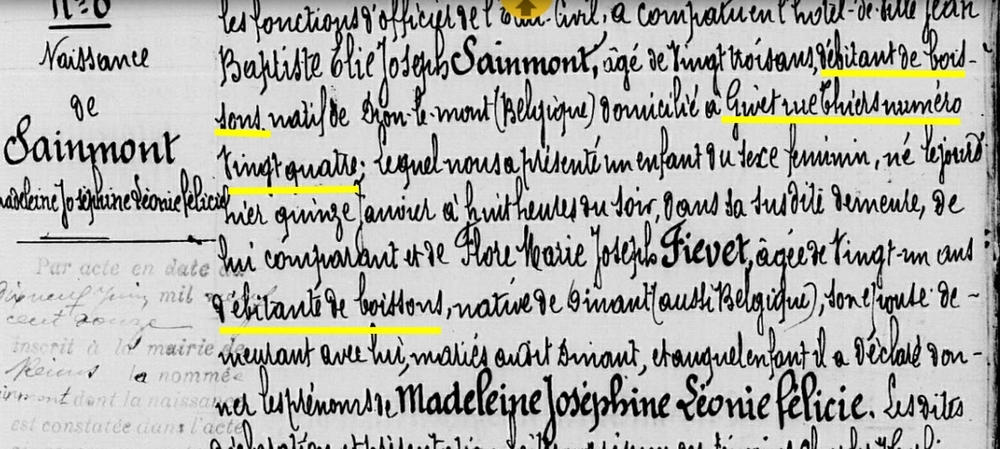 N° 6
Naissance
de
Sainmont
Madeleine Joséphine Léonie Félicie
Par acte en date du
dix neuf juin mil neuf
cent douze
inscrit à la mairie de
Reims la nommée
Sainmont dont la naissance
est constatée dans l'acte
les fonctions d'officier de l'Etat-Civil, a comparu en l'hôtel-de-ville Jean
Baptiste Elie Joseph Sainmont, âgé de vingt trois ans, débitant de bois-
sons natif de Dyon-le-mont (Belgique) domicilié à Givet rue Thiers numéro
vingt quatre; lequel nous a présenté un enfant du sexe feminin, né le jour d'
hier quinze Janvier à huit heures du soir, dans sa susdite demeure, de
lui comparant et de Flore Marie Joseph Fievet, âgée de vingt-un ans
débitante de boissons, native de Dinant (aussi Belgique), son épouse de-
meurant avec lui, mariés audit Dinant, et auquel enfant il a déclaré don-
ner les prénoms de Madeleine Joséphine Léonie Félicie. Les dites
déclaration et présentation